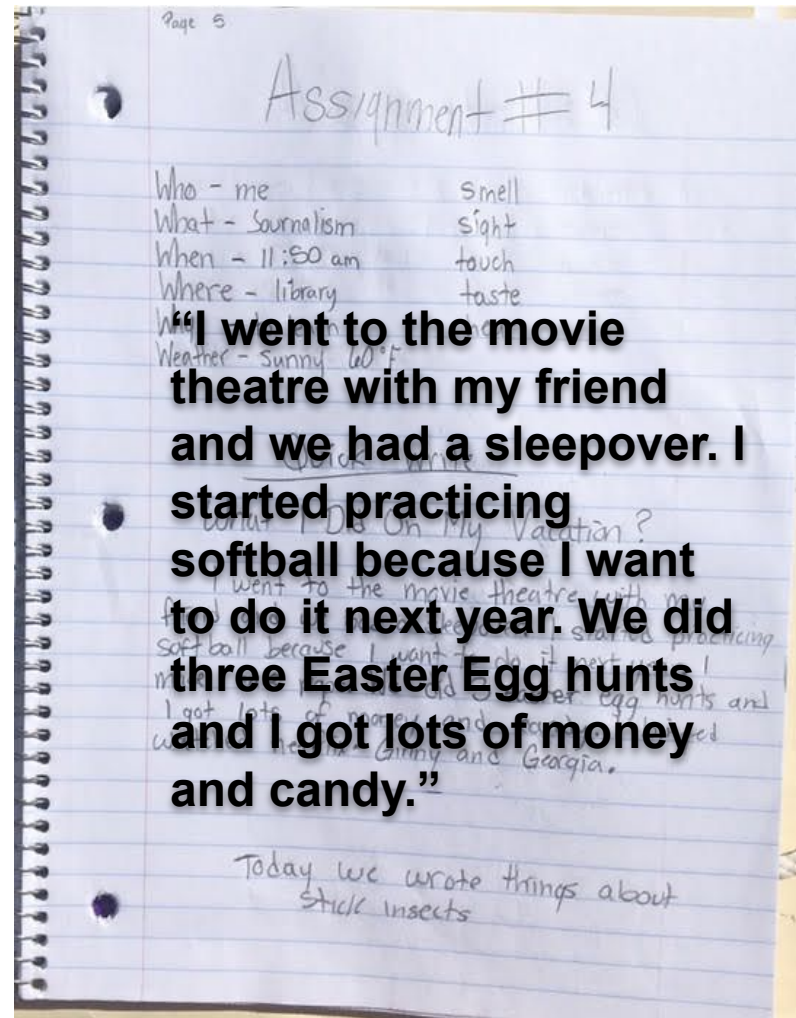 Page 5
Assignment # 4
Who - me
smell
What - Journalism
sight
When - 11:50 am
touch
Where - library
taste
Weather - Sunny 60°F
“I went to the movie
theatre with my friend
and we had a sleepover. I
started practicing
softball because I want
to do it next year. We did
three Easter Egg hunts
and I got lots of money
and candy.”
Quick Write
What I Did On My Vacation?
I went to the movie theatre with
practicing
softball because I want to do it next
egg hunts and
I got lots of money and
Ginny and Georgia.
Today we wrote things about
stick insects